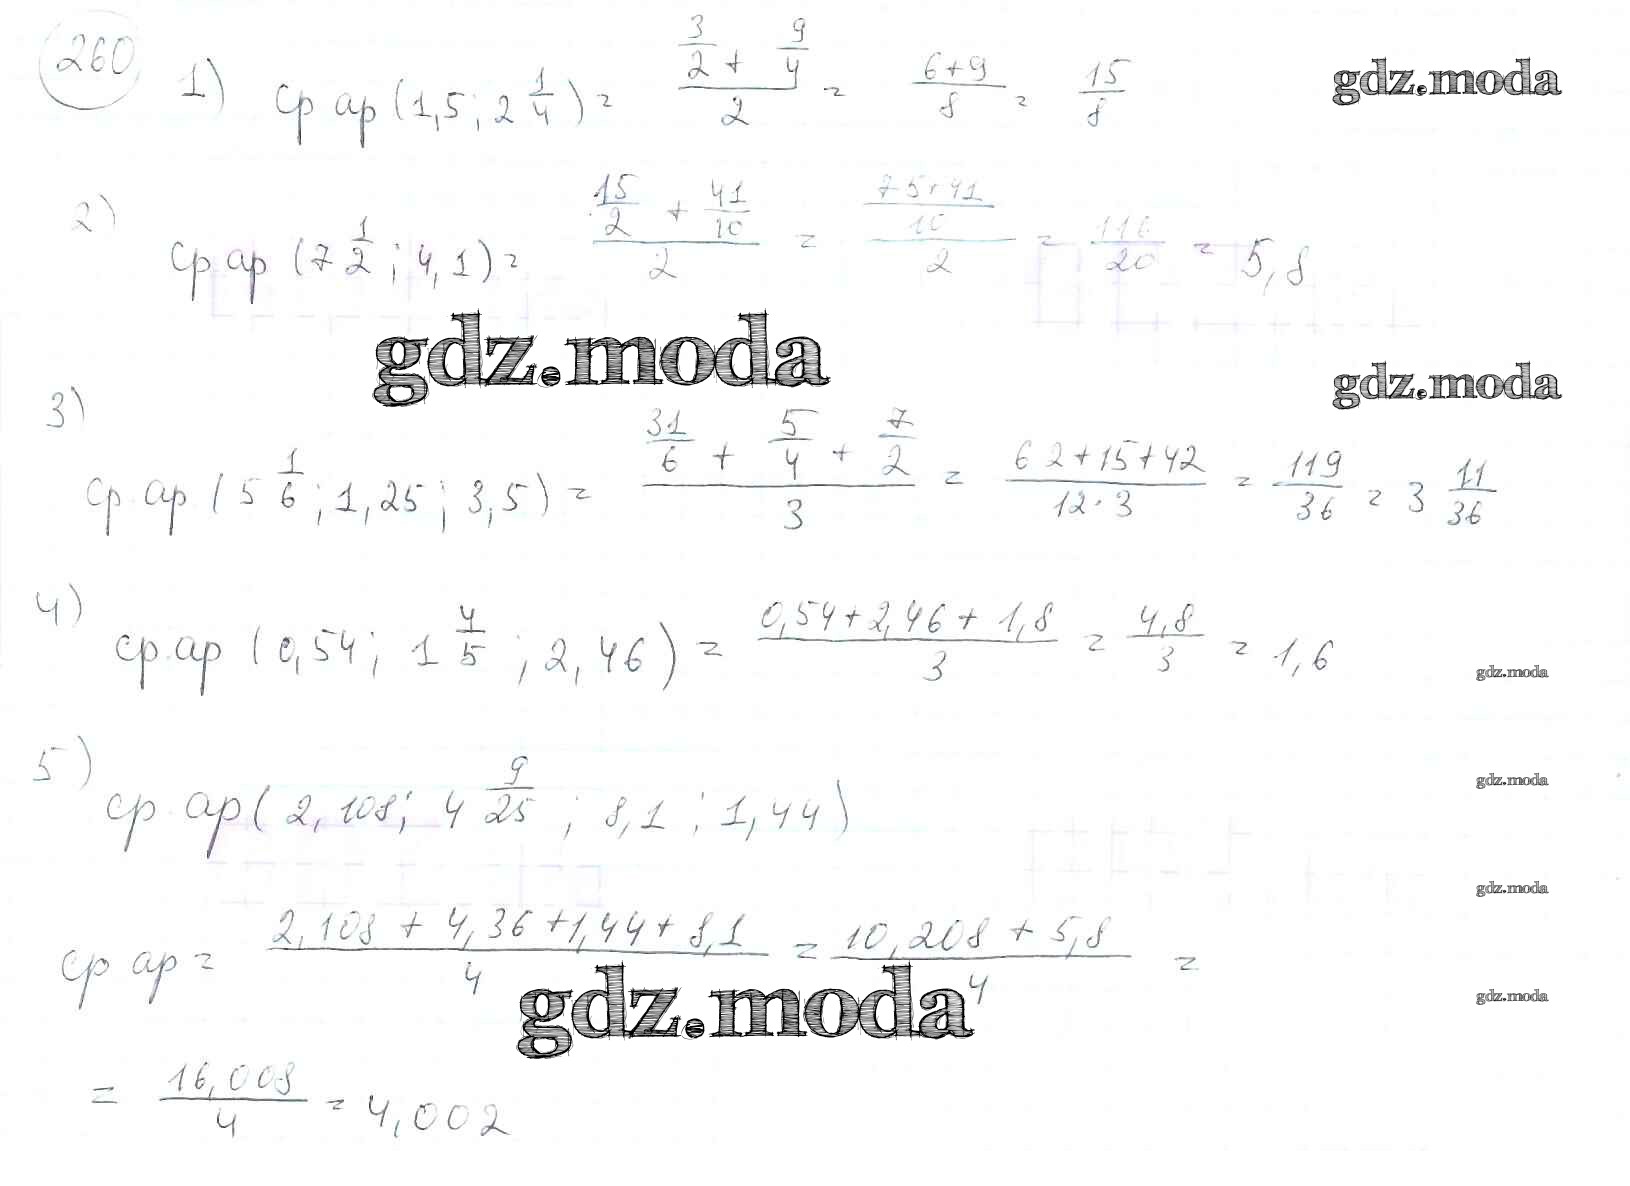 260 1) ср ар (1,5; 2 1/4) = (3/2 + 9/4)/2 = (6+9)/8 = 15/8 gdz.moda
2) ср ар (7 1/2; 4,1) = (15/2 + 41/10)/2 = ((75+41)/10)/2 = 116/20 = 5,8
gdz.moda
gdz.moda
3) ср ар (5 1/6; 1,25; 3,5) = (31/6 + 5/4 + 7/2)/3 = (62+15+42)/(12·3) = 119/36 = 3 11/36
4) ср ар (0,54; 1 4/5; 2,46) = (0,54+2,46+1,8)/3 = 4,8/3 = 1,6
gdz.moda
5) ср ар (2,108; 4 9/25; 8,1; 1,44)
gdz.moda
gdz.moda
ср ар = (2,108 + 4,36 + 1,44 + 8,1)/4 = (10,208 + 5,8)/4 =
gdz.moda
gdz.moda
= 16,008/4 = 4,002